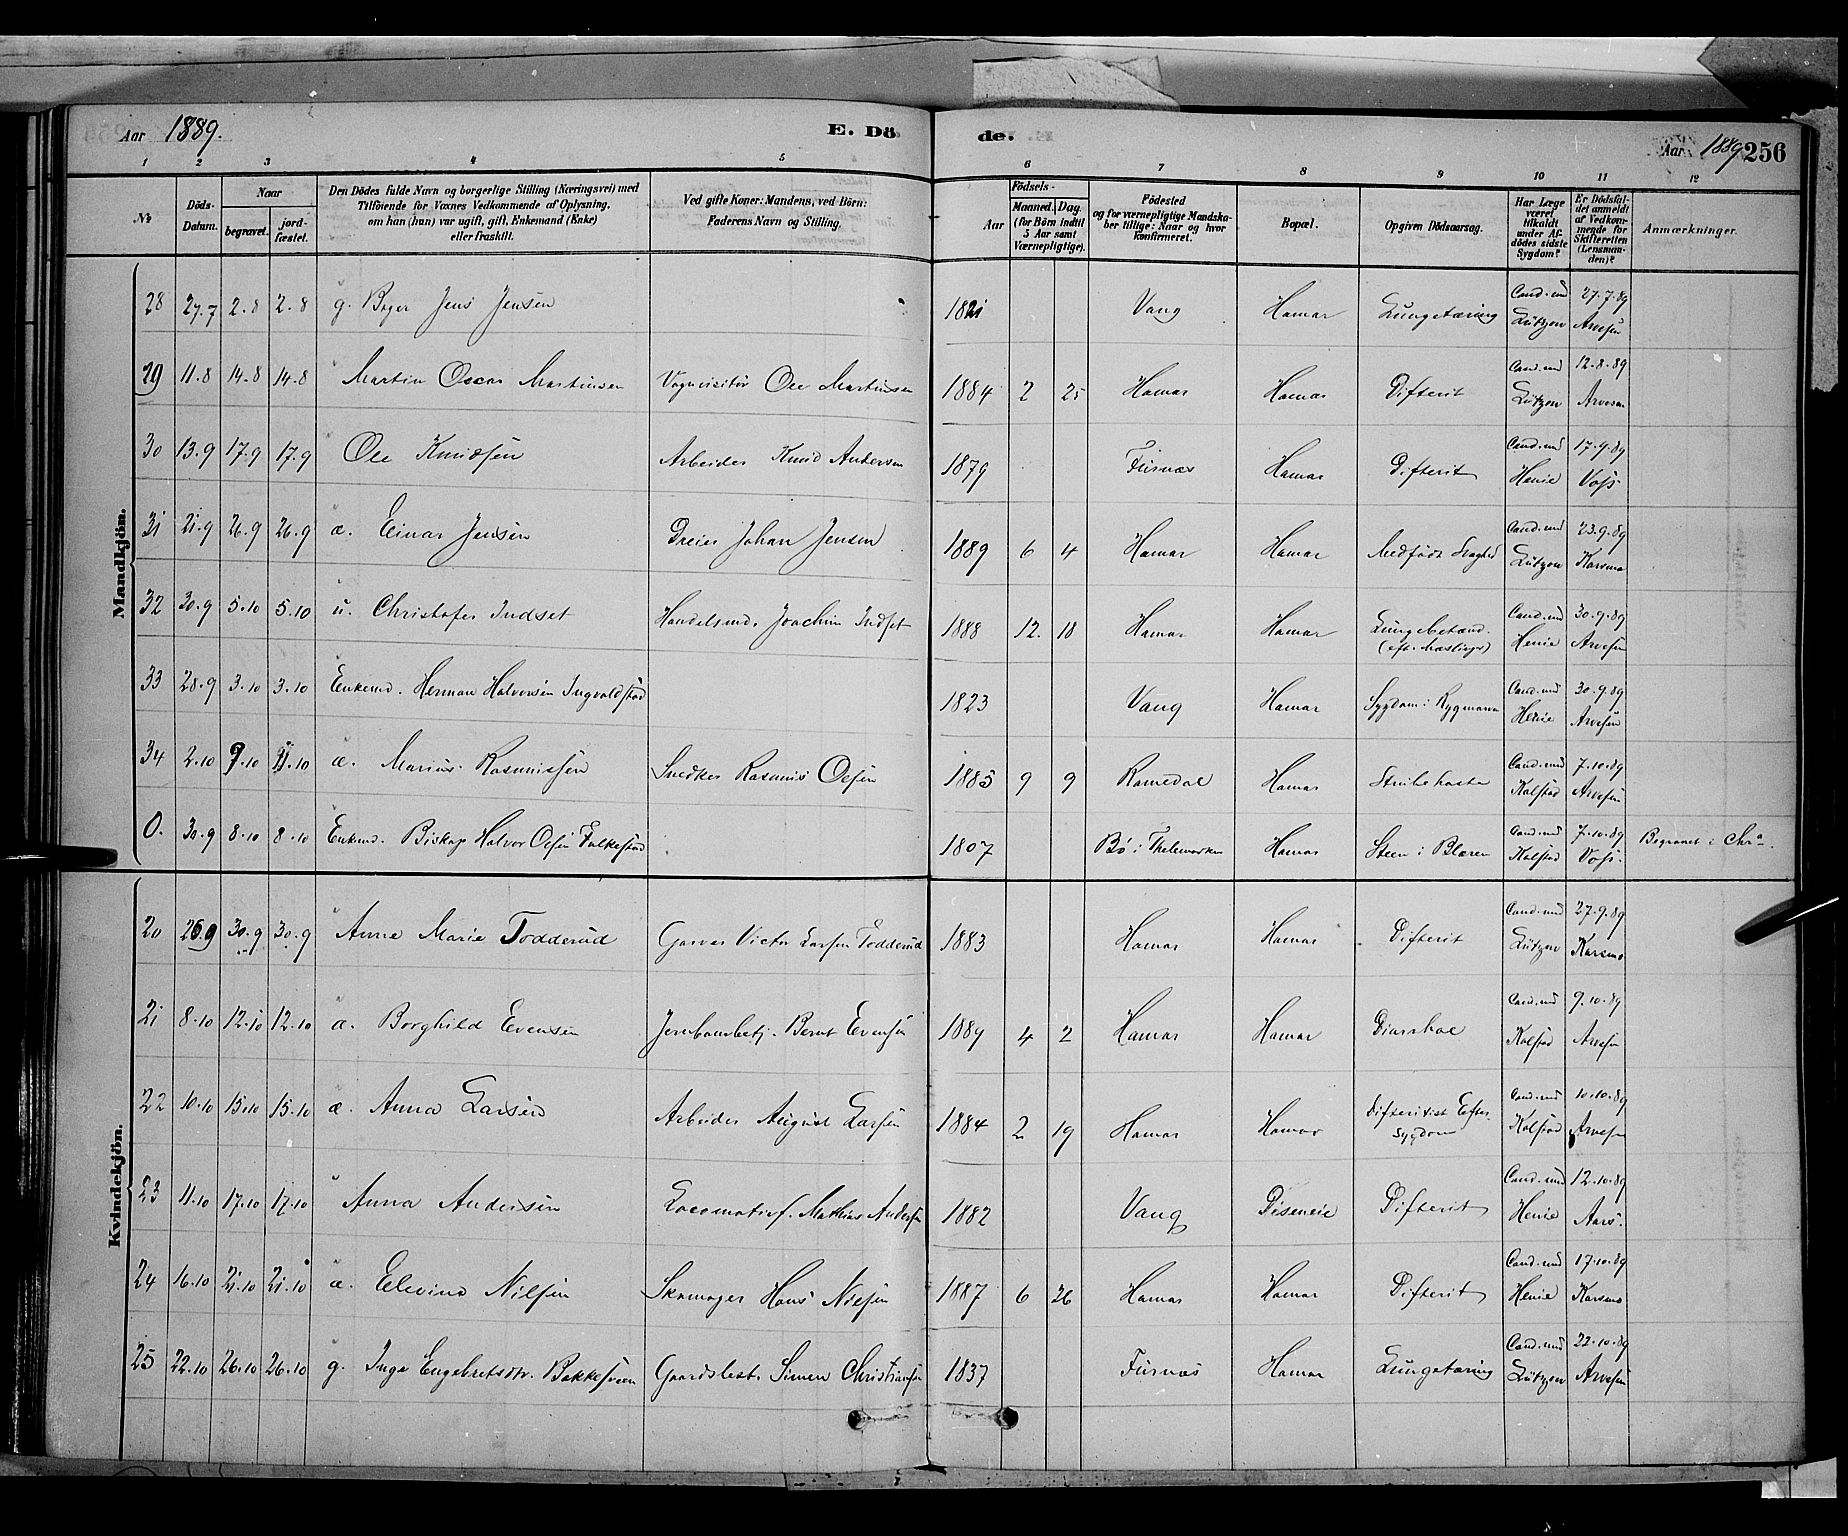 Aar 1889. E. Dö de. Aar 1889 256
1 2 3 4 5 6 7 8 9 10 11 12
No Döds-Datum. Naar begravet. jordfæstet. Den Dödes fulde Navn og borgerlige Stilling (Næringsvei) med Tilföiende for Voxnes Vedkommende af Oplysning, om han (hun) var ugift, gift, Enkemand (Enke) eller fraskilt. Ved gifte Koner: Mandens, ved Börn: Faderens Navn og Stilling. Aar Födsels- Maaned. Dag. (for Börn indtil 5 Aar samt Værnepligtige). Födested og for værnepligtige Mandskaber tillige: Naar og hvor konfirmeret. Bopæl. Opgiven Dödsaarsag. Har Læge været tilkaldt under Afdödes sidste Sygdom? Er Dödsfaldet anmeldt af Vedkommende for Skifteretten (Lensmanden)? Anmærkninger.
Mandkjön.
28 27.7 2.8 2.8 g. Jens Jensen 1821 Vang Hamar Lungetæring Cand. med Lützow 27.7.89 Arvesen
29 11.8 14.8 14.8 Martin Oscar Martinsen Vognvisitør Ole Martinsen 1884 2 25 Hamar Hamar Difterit Cand. med Lützow 12.8.89 Arvesen
30 13.9 17.9 17.9 Ole Knudsen Arbeider Knud Andersen 1879 Furnæs Hamar Difterit Cand. med Henie 17.9.89 Voss
31 21.9 26.9 26.9 æ. Einar Jensen Dreier Johan Jensen 1889 6 4 Hamar Hamar Medfødt Svaghed Cand. med Lützow 23.9.89 Karsmo
32 30.9 5.10 5.10 u. Christofer Indset Handelsmd. Joachim Indset 1888 12. 18 Hamar Hamar Lungebetænd. (eft. Mæslinger) Cand. med Henie 30.9.89 Arvesen
33 28.9 3.10 3.10 Enkemd. Herman Halvorsen Ingvoldstad 1823 Vang Hamar Sygdom i Rygmarven Cand. med Henie 30.9.89 Arvesen
34 2.10 9.10 .10 æ. Marius Rasmussen Snedker Rasmus Olsen 1885 9 9 Romedal Hamar Strubehoste Cand. med Kolstad 7.10.89 Arvesen
0. 30.9 8.10 8.10 Enkemd. Biskop Halvor Olsen Folkestad 1807 Bø i Thelemarken Hamar Steen i Blæren Cand. med Kolstad 7.10.89 Voss Begravet i Chra.
Kvindekjön.
20 26.9 30.9 30.9 Anne Marie Todderud Garver Victor Larsen Todderud 1883 Hamar Hamar Difterit Cand. med Lützow 27.9.89 Karsmo
21 8.10 12.10 12.10 æ. Borghild Evensen Jernbanebetj. Bernt Evensen 1889 4 2 Hamar Hamar Diarrhoe Cand. med Kolstad 9.10.89 Arvesen
22 10.10 15.10 15.10 æ. Anna Larsen Arbeider August Larsen 1884 2 19 Hamar Hamar Difteritisk Eftersygdom Cand. med Kolstad 10.10.89 Arvesen
23 11.10 17.10 17.10 Anna Andersen Locomotivf. Mathias Andersen 1882 Vang Diseneie Difterit Cand. med Henie 12.10.89 Aars.
24 16.10 21.10 21.10 æ. Elevine Nilsen Skomager Hans Nilsen 1887 6 26 Hamar Hamar Difterit Cand. med Henie 17.10.89 Karsmo
25 22.10 26.10 26.10 g. Inge Engebretsdtr. Bakkesveen Gaardsbest. Simen Christiansen 1837 Furnæs Hamar Lungetæring Cand. med Lützow 22.10.89 Arvesen